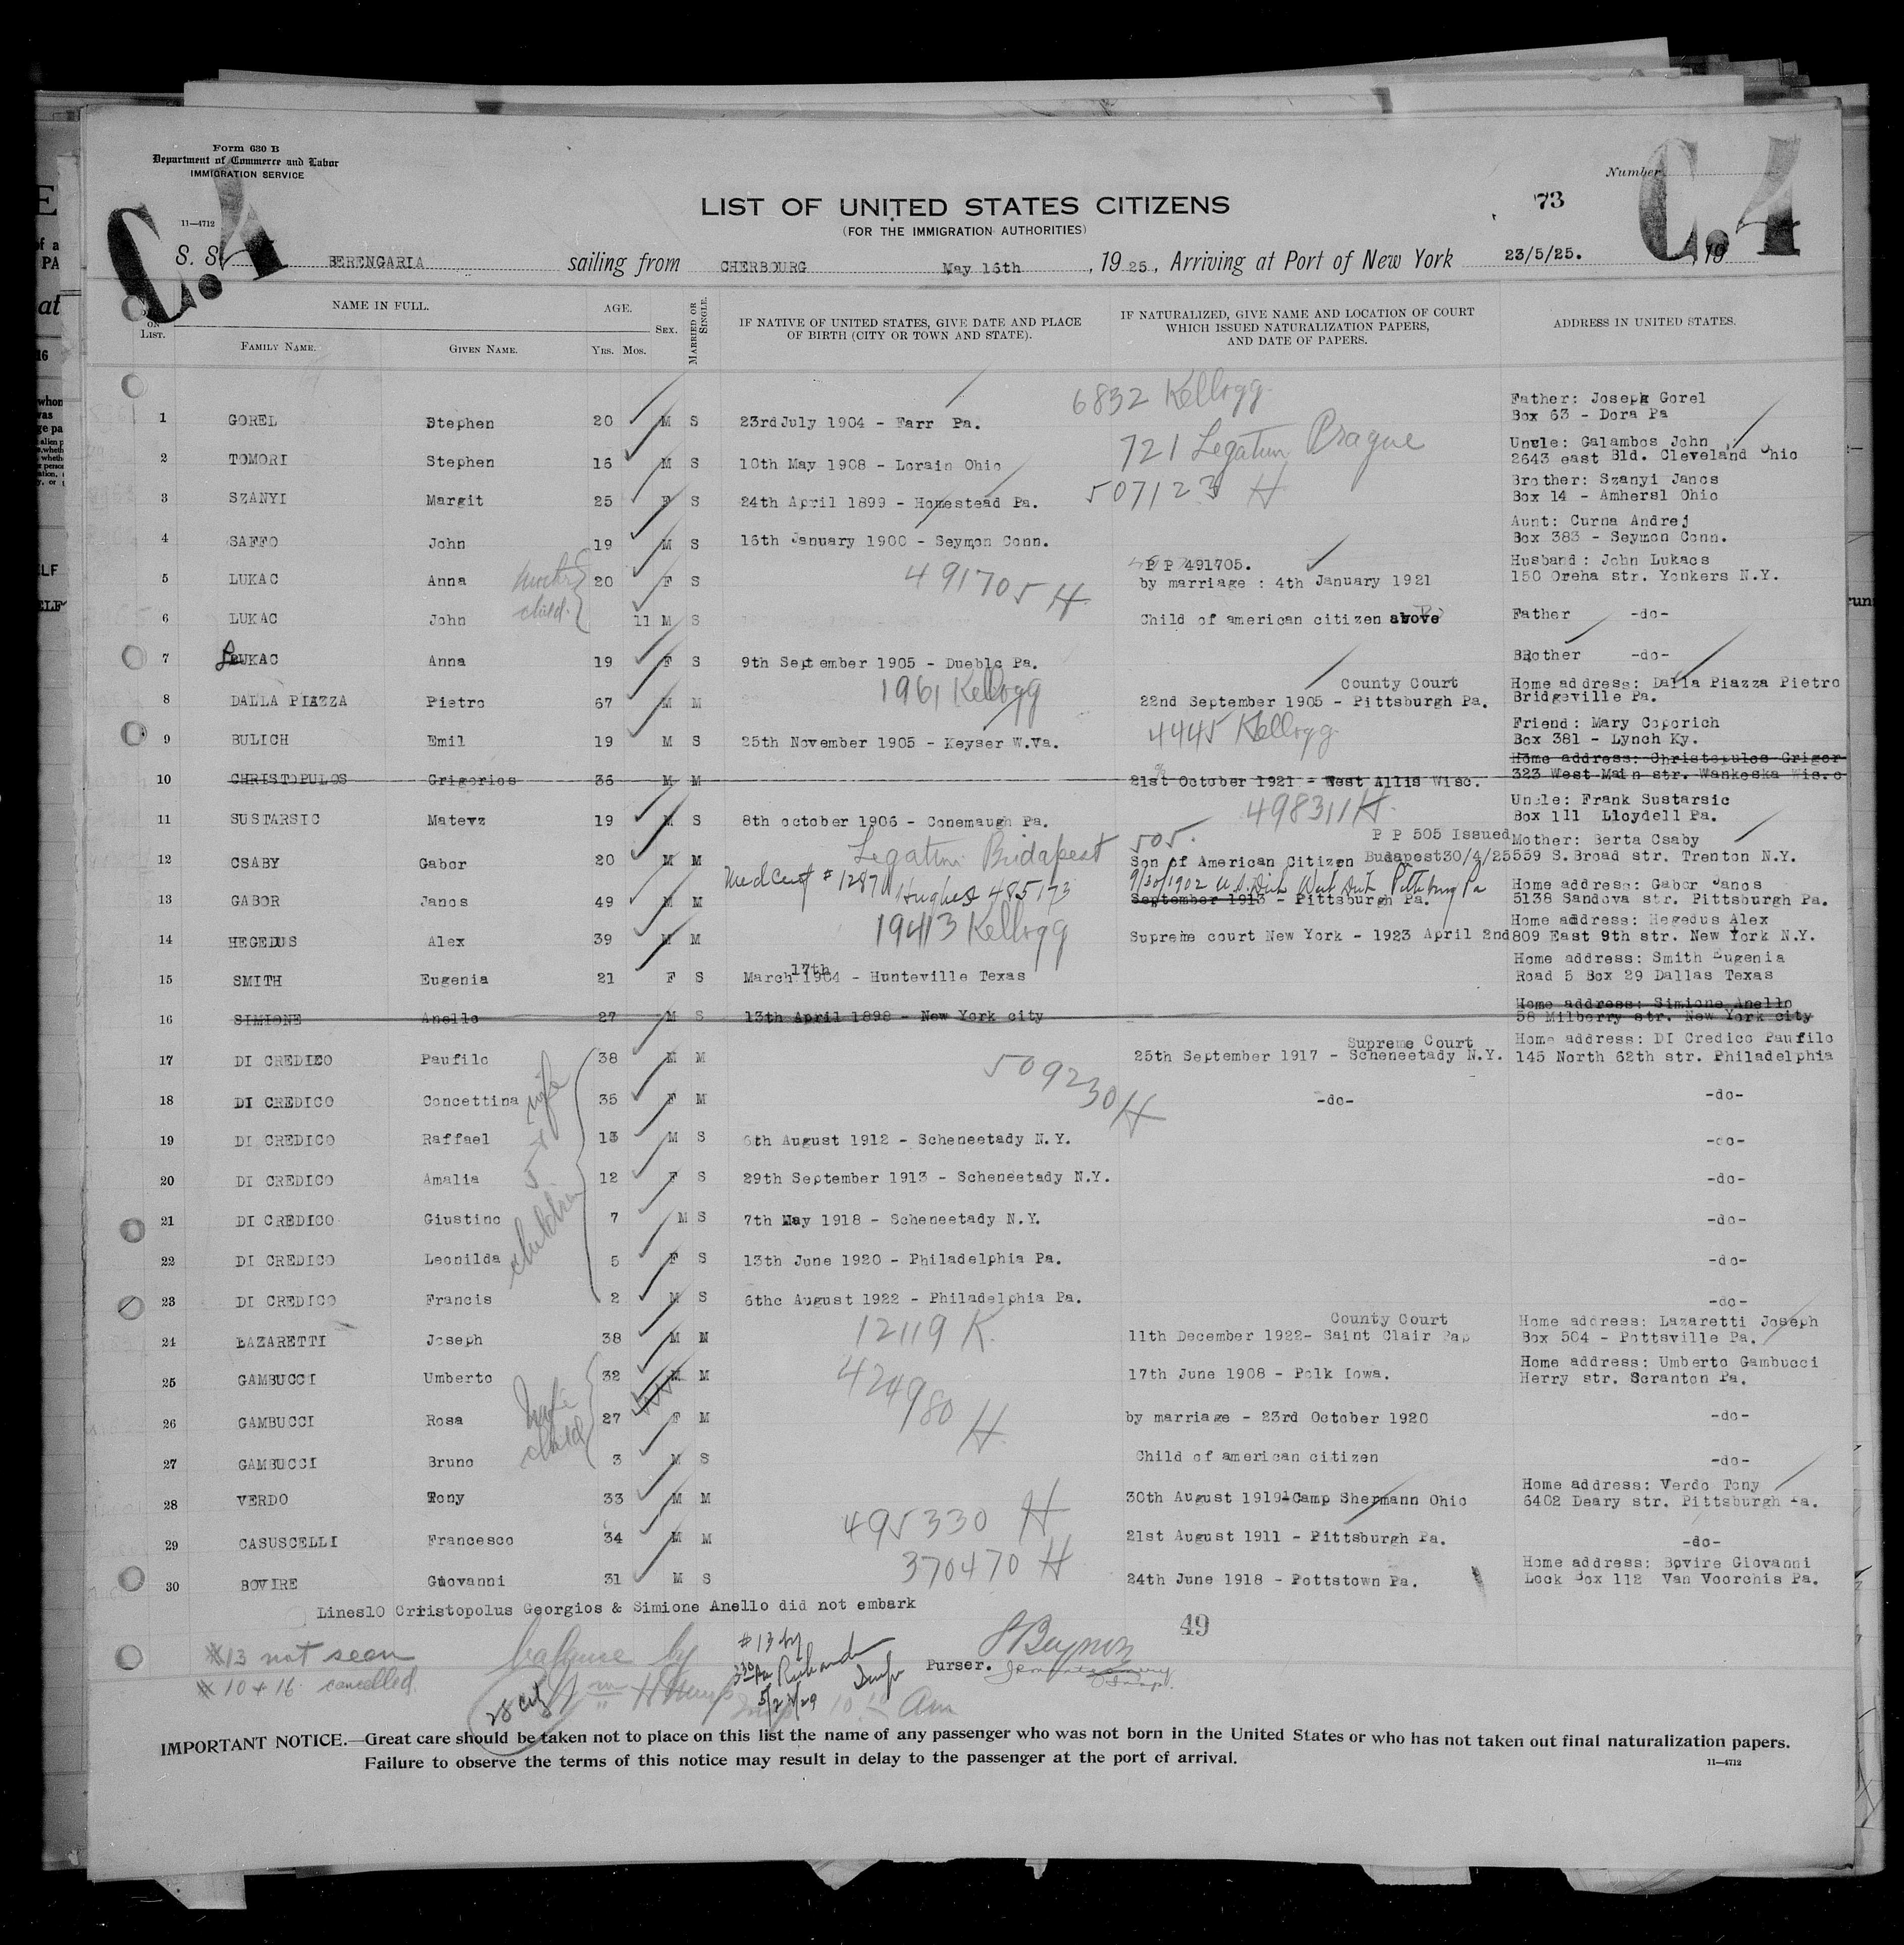 Form 630 B
Department of Commerce and Labor
IMMIGRATION SERVICE
11—4712
C.4
Number
C.4
73
LIST OF UNITED STATES CITIZENS
(FOR THE IMMIGRATION AUTHORITIES)
S. S. BERENGARIA sailing from CHERBOURG May 16th, 1925, Arriving at Port of New York 23/5/25. , 19
ON LIST. NAME IN FULL. FAMILY NAME. GIVEN NAME. AGE. YRS. MOS. SEX. MARRIED OR SINGLE. IF NATIVE OF UNITED STATES, GIVE DATE AND PLACE OF BIRTH (CITY OR TOWN AND STATE). IF NATURALIZED, GIVE NAME AND LOCATION OF COURT WHICH ISSUED NATURALIZATION PAPERS, AND DATE OF PAPERS. ADDRESS IN UNITED STATES.
6832 Kellogg
1 GOREL Stephen 20 M S 23rdJuly 1904 - Farr Pa. Father: Joseph Gorel Box 63 - Dora Pa
721 Legation Prague
2 TOMORI Stephen 16 M S 10th May 1908 - Lorain Ohio Uncle: Galambos John 2643 east Bld. Cleveland Ohio
507123 H
3 SZANYI Margit 25 F S 24th April 1899 - Homestead Pa. Brother: Szanyi Janos Box 14 - Amhersl Ohio
4 SAFFO John 19 M S 16th January 1900 - Seymon Conn. Aunt: Curna Andrej Box 383 - Seymon Conn.
5 LUKAC Anna 20 F S 491705 H P P 491705. by marriage : 4th January 1921 Husband: John Lukacs 150 Oreha str. Yonkers N.Y.
child
6 LUKAC John 11 M S Child of american citizen above Father -do-
7 LUKAC Anna 19 F S 9th September 1905 - Dueblo Pa. Brother -do-
1961 Kellogg
8 DALLA PIAZZA Pietro 67 M M County Court 22nd September 1905 - Pittsburgh Pa. Home address: Dalla Piazza Pietro Bridgeville Pa.
4445 Kellogg
9 BULICH Emil 19 M S 25th November 1905 - Keyser W.Va. Friend: Mary Coporich Box 381 - Lynch Ky.
10 CHRISTOPULOS Grigorios 36 M M 21st October 1921 - West Allis Wisc. Home address: Christopulos Grigor 323 West Main str. Wankeska Wis.c
498311 H.
11 SUSTARSIC Matevz 19 M S 8th october 1906 - Conemaugh Pa. Uncle: Frank Sustarsic Box 111 Lloydell Pa.
Legation Budapest 505.
12 CSABY Gabor 20 M M P P 505 Issued Son of American Citizen Budapest30/4/25 Mother: Berta Csaby 559 S.Broad str. Trenton N.Y.
Hughes 485173 9/30/1902 Pittsburg Pa
13 GABOR Janos 49 M M September 1913 - Pittsburgh Pa. Home address: Gabor Janos 5138 Sandova str. Pittsburgh Pa.
19413 Kellogg
14 HEGEDUS Alex 39 M M Supreme court New York - 1923 April 2nd Home address: Hegedus Alex 809 East 9th str. New York N.Y.
15 SMITH Eugenia 21 F S March 17th 1904 - Hunteville Texas Home address: Smith Eugenia Road 5 Box 29 Dallas Texas
16 SIMIONE Anello 27 M S 13th April 1898 - New York city Home address: Simione Anello 58 Milberry str. New York city
17 DI CREDICO Paufilo 38 M M Supreme Court 25th September 1917 - Scheneetady N.Y. Home address: DI Credico Paufilo 145 North 62th str. Philadelphia
509230 H
wife + 5 children
18 DI CREDICO Concettina 35 F M -do- -do-
19 DI CREDICO Raffael 13 M S 6th August 1912 - Scheneetady N.Y. -do-
20 DI CREDICO Amalia 12 F S 29th September 1913 - Scheneetady N.Y. -do-
21 DI CREDICO Giustino 7 M S 7th May 1918 - Scheneetady N.Y. -do-
22 DI CREDICO Leonilda 5 F S 13th June 1920 - Philadelphia Pa. -do-
23 DI CREDICO Francis 2 M S 6thc August 1922 - Philadelphia Pa. -do-
12119 K.
24 LAZARETTI Joseph 38 M M County Court 11th December 1922- Saint Clair Pa. Home address: Lazaretti Joseph Box 504 - Pottsville Pa.
424980 H
25 GAMBUCCI Umberto 32 M M 17th June 1908 - Polk Iowa. Home address: Umberto Gambucci Herry str. Scranton Pa.
wife child
26 GAMBUCCI Rosa 27 F M by marriage - 23rd October 1920 -do-
27 GAMBUCCI Bruno 3 M S Child of american citizen -do-
28 VERDO Tony 33 M M 30th August 1919-Camp Shermann Ohio Home address: Verdo Tony 6402 Deary str. Pittsburgh Pa.
495330 H
29 CASUSCELLI Francesco 34 M M 21st August 1911 - Pittsburgh Pa. -do-
370470 H
30 BOVIRE Giovanni 31 M S 24th June 1918 - Pottstown Pa. Home address: Bovire Giovanni Lock Box 112 Van Voorchis Pa.
Lines10 Cristopolus Georgios & Simione Anello did not embark
49
#13 not seen
# 10 + 16 cancelled.
balance by
#13 by
Purser.
Am
IMPORTANT NOTICE.—Great care should be taken not to place on this list the name of any passenger who was not born in the United States or who has not taken out final naturalization papers.
Failure to observe the terms of this notice may result in delay to the passenger at the port of arrival.
11—4712